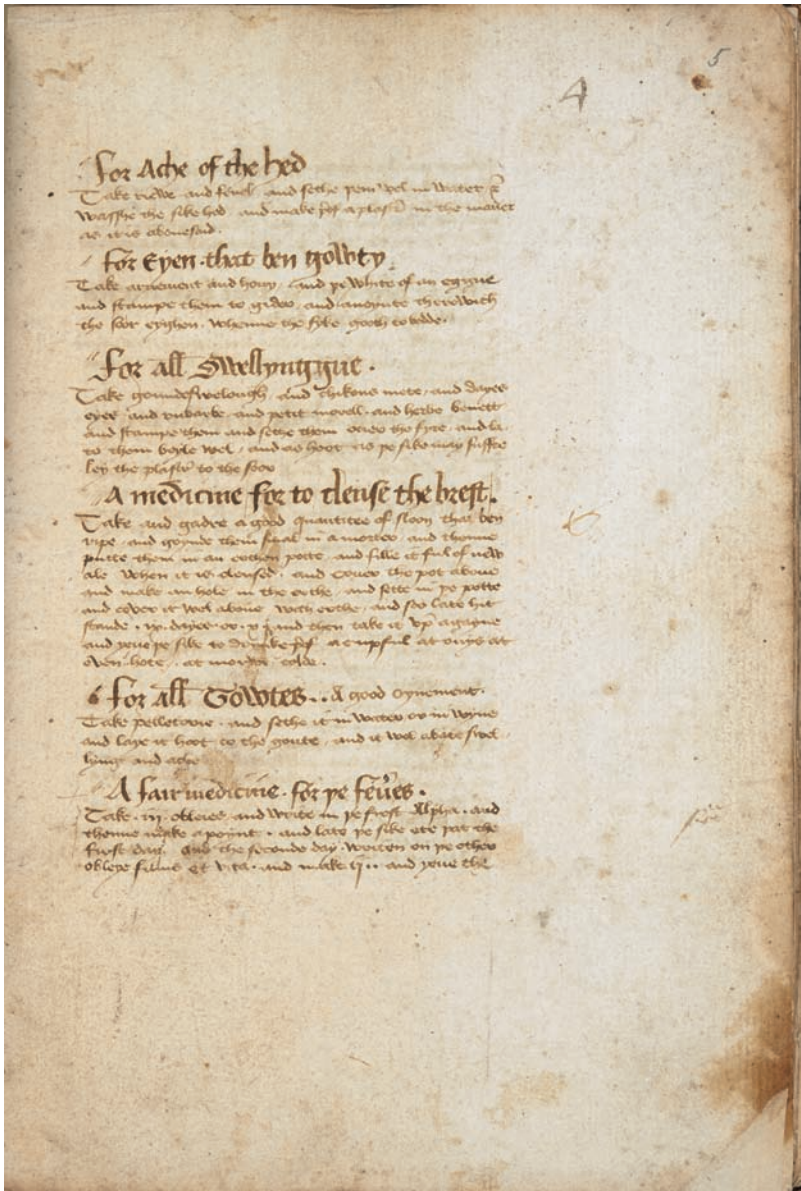 5
4
For Ache of the hed
Take ruwe and fenel and sethe þem wel in water &
wasshe the sike hed and make a plast in the maner
as it is aboue said.
For Eyen that ben gowty
Take arnement and hony and þe white of an eygue
and stampe them to gider and anoynte therewith
the soor eyghen whenne the syke gooth to bedde.
For all Swellynggue.
Take groundeswelough and chikons mete and dayes
eyes and rubarbe and petit morell and herbe benett
and stampe them and sethe them ouer the fyre and la
to them boyle wel and as hoot as þe sike may suffre
ley the plastr to the soor
A medicine for to clense the brest.
Take and gadre a good quantitee of sloon that ben
ripe and grynde them smal in a morter and thenne
putte them in an erthen potte and fille it ful of new
ale when it is clensed and couer the pot aboue
and make an hole in the erthe and sette in þe potte
and cover it wel aboue with erthe and soo late hit
stande . ix . dayes or . x and then take it vp agayne
and yeue þe sike to drynke a cupful at onys at
even hote . at morow colde .
For all Gowtes . . A good oynement .
Take pelletorie and sethe it in water or in wyne
and laye it hoot to the goute and it wol abate swel
lyng and ache
A fair medicine for þe feu's .
Take . iij . oblees and write in þe first Alpha . and
thenne make a poynt . and late þe sike ete þat the
first day. And the seconde day writen on þe other
obleye filius et vita and make ij . . and yeue the